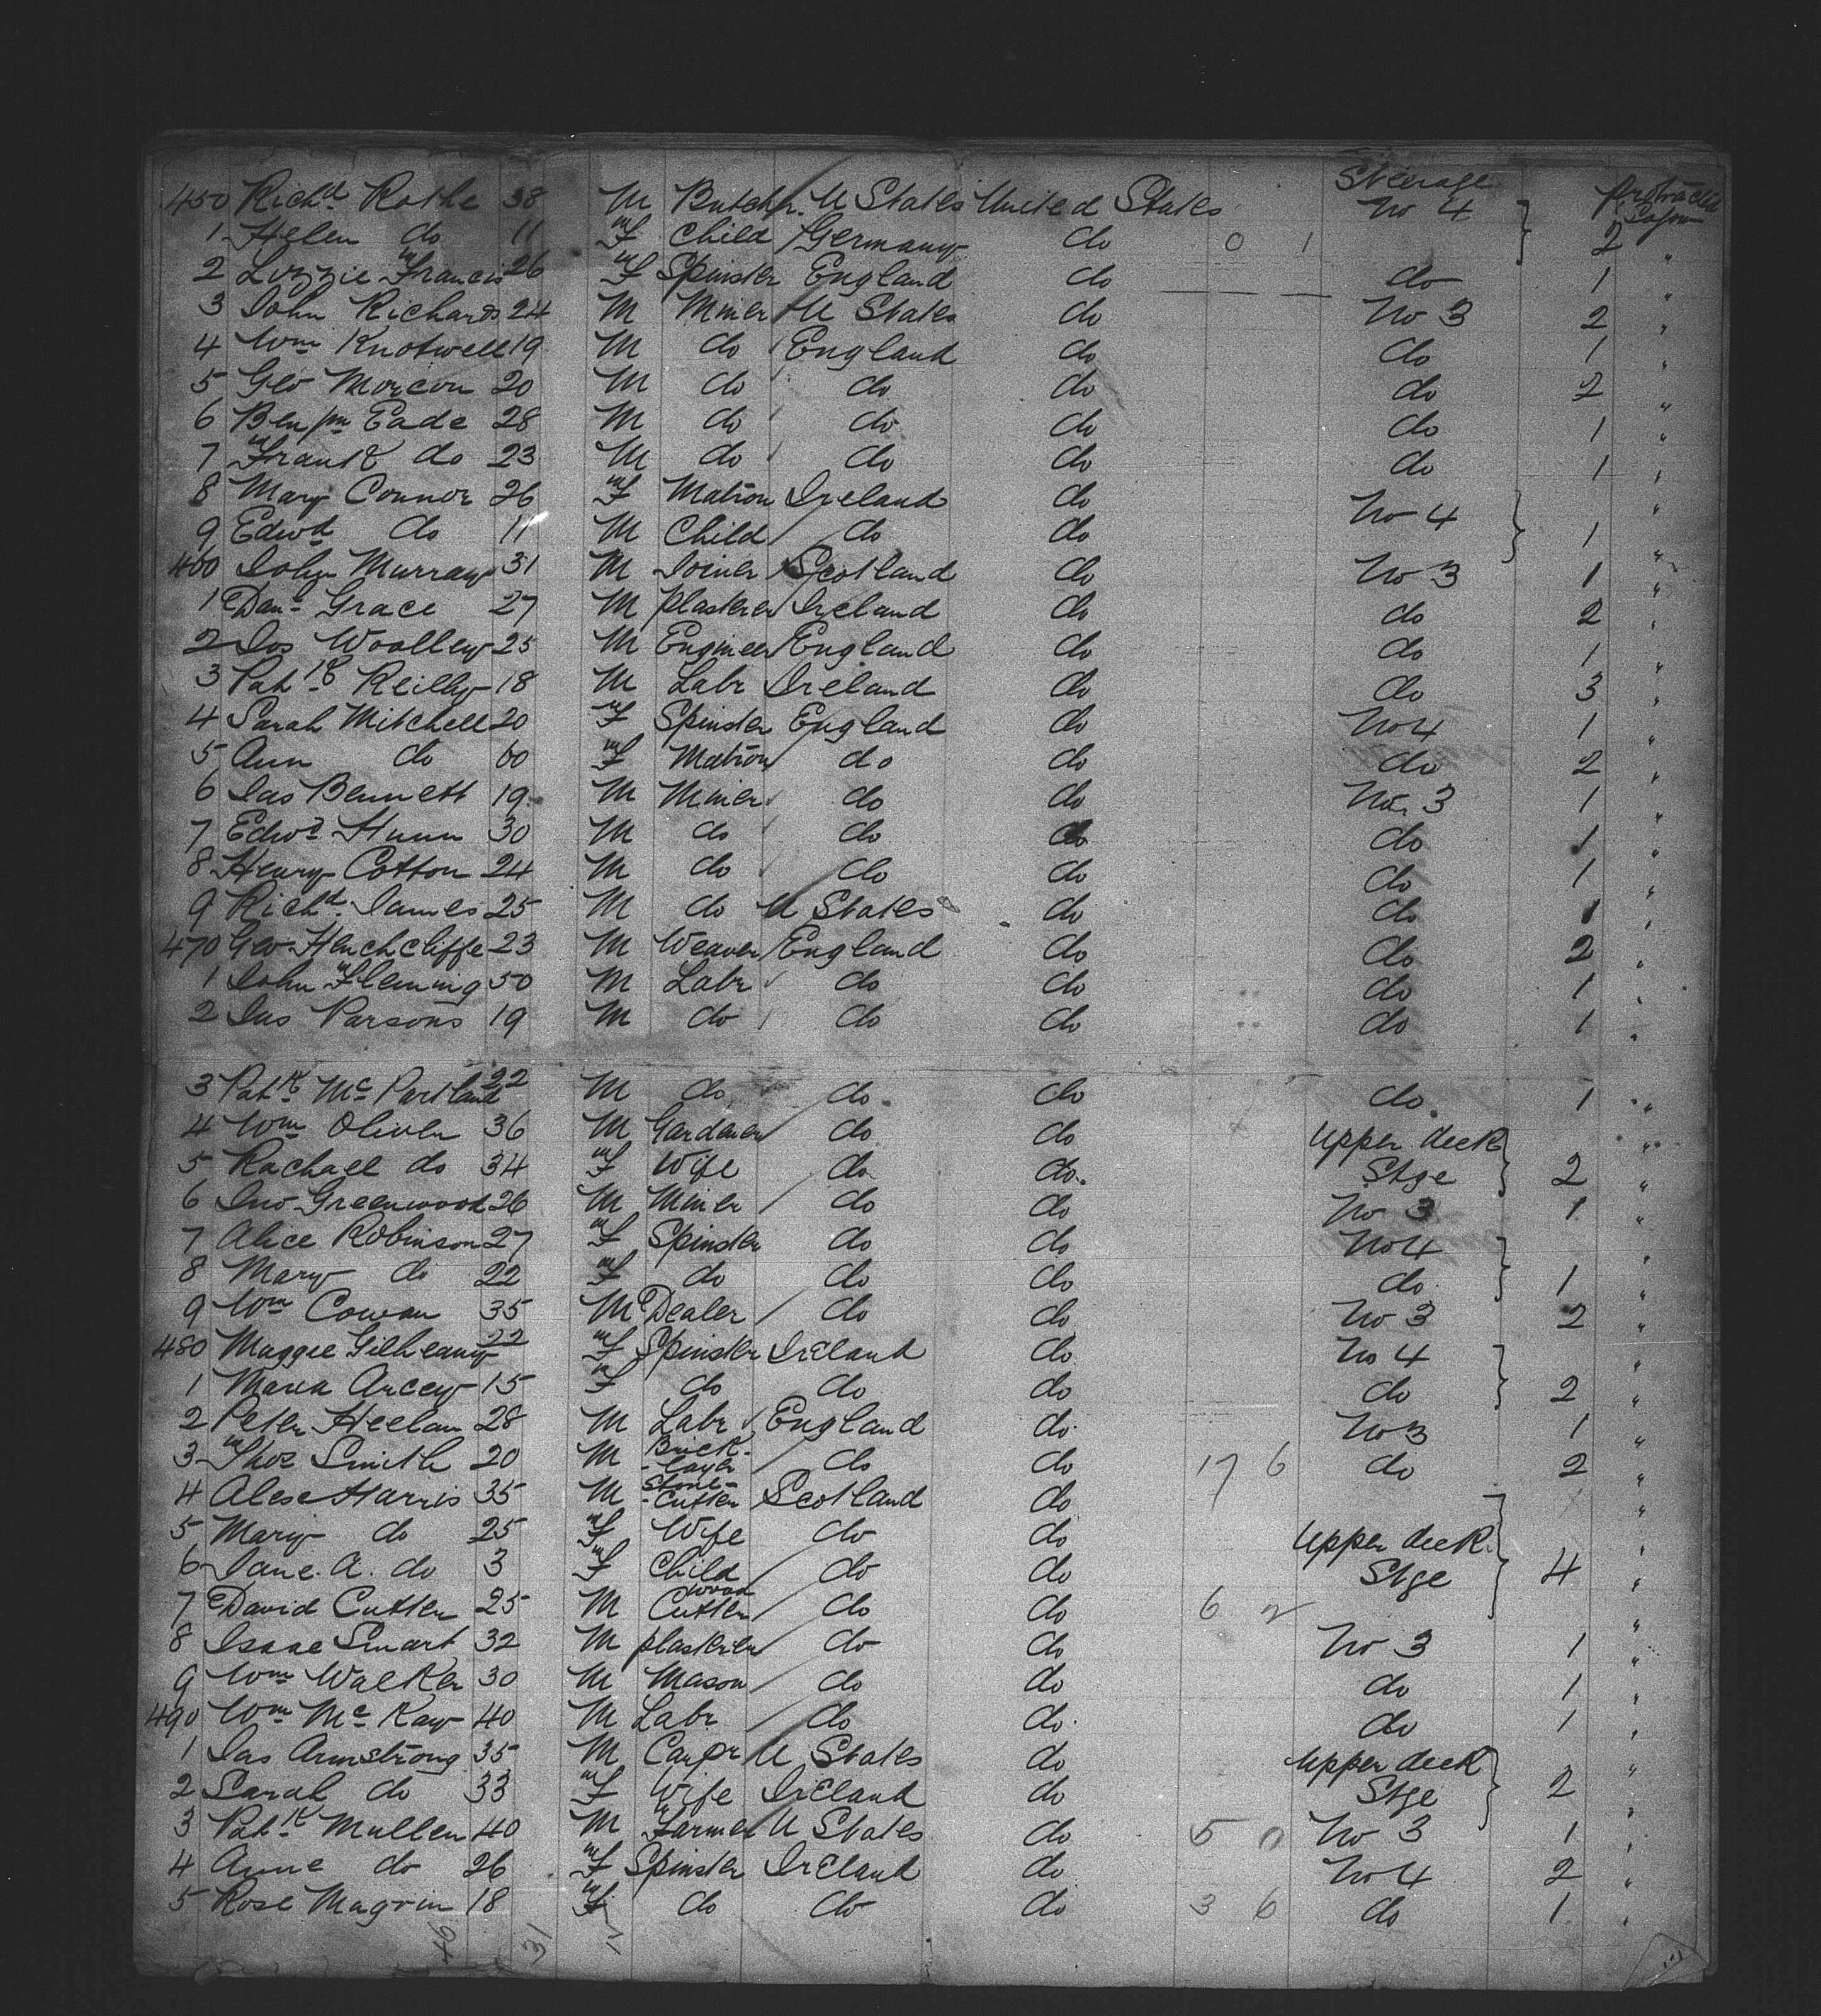 Steerage Protracted Sojourn
450 Richd. Rothe 38 M Butchr. U States United States No 4
1 Helen do 11 F Child Germany do 0 1 2 "
2 Lizzie Francis 26 F Spinster England do do 1 "
3 John Richards 24 M Miner U States do No 3 2 "
4 Wm Knotwell 19 M do England do do 1 "
5 Geo Morcom 20 M do do do do 2 "
6 Benjm Eade 28 M do do do do 1 "
7 Frank do 23 M do do do do 1 "
8 Mary Connor 26 F Matron Ireland do No 4 "
9 Edwd do 11 M Child do do 1 "
460 John Murray 31 M Joiner Scotland do No 3 1 "
1 Danl Grace 27 M Plasterer Ireland do do 2 "
2 Jos Woolley 25 M Engineer England do do 1 "
3 Patk Reilly 18 M Labr Ireland do do 3 "
4 Sarah Mitchell 20 F Spinster England do No 4 1 "
5 Ann do 60 F Matron do do do 2 "
6 Jas Bennett 19 M Miner do do No. 3 1 "
7 Edwd Hunn 30 M do do do do 1 "
8 Henry Cotton 24 M do do do do 1 "
9 Richd. James 25 M do U States do do 1 "
470 Geo Hinchcliffe 23 M Weaver England do do 2 "
1 John Fleming 50 M Labr do do do 1 "
2 Jas Parsons 19 M do do do do 1 "
3 Patk Mc Partland 22 M do do do do 1 "
4 Wm Oliver 36 M Gardener do do Upper deck "
5 Rachael do 34 F Wife do do Stge 2 "
6 Jno Greenwood 26 M Miner do do No 3 1 "
7 Alice Robinson 27 F Spinster do do No 4 "
8 Mary do 22 F do do do do 1 "
9 Wm Cowan 35 M Dealer do do No 3 2 "
480 Maggie Gilheany 22 F Spinster Ireland do No 4 "
1 Maria Arcey 15 F do do do do 2 "
2 Peter Heelan 28 M Labr England do No 3 1 "
3 Thos Smith 20 M Brick-layer do do 17 6 do 2 "
4 Alexr Harris 35 M Stone-Cutter Scotland do "
5 Mary do 25 F Wife do do Upper deck "
6 Jane. A. do 3 F Child do do Stge 4 "
7 David Cutter 25 M wood Cutter do do 6 2 "
8 Isaac Smart 32 M plasterer do do No 3 1 "
9 Wm Walker 30 M Mason do do do 1 "
490 Wm Mc Kay 40 M Labr do do do 1 "
1 Jas Armstrong 35 M Carpr U States do Upper deck "
2 Sarah do 33 F Wife Ireland do Stge 2 "
3 Patk Mullen 40 M Farmer U States do 5 0 No 3 1 "
4 Anne do 26 F Spinster Ireland do No 4 2 "
5 Rose Magrin 18 F do do do 3 6 do 1 "
46 31